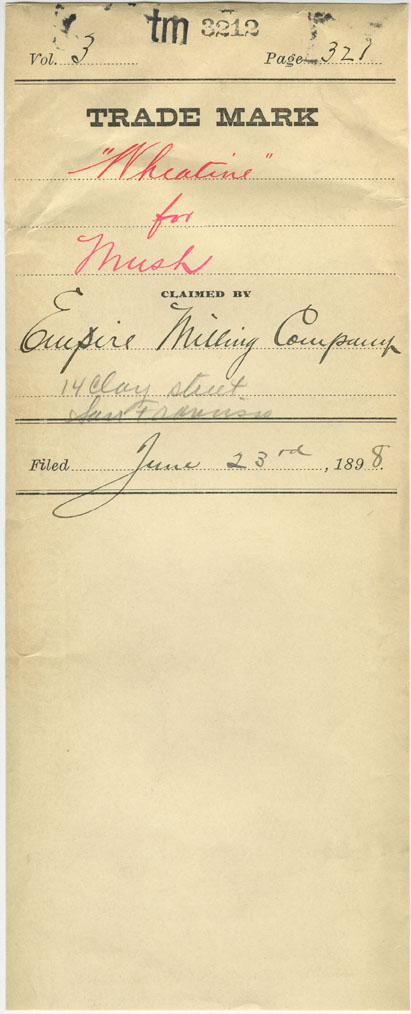 tm 3212
Vol. 3 Page 321
TRADE MARK
"Wheatine"
for
Mush
CLAIMED BY
Empire Milling Company
14 Clay street
San Francisco
Filed June 23rd, 1898.